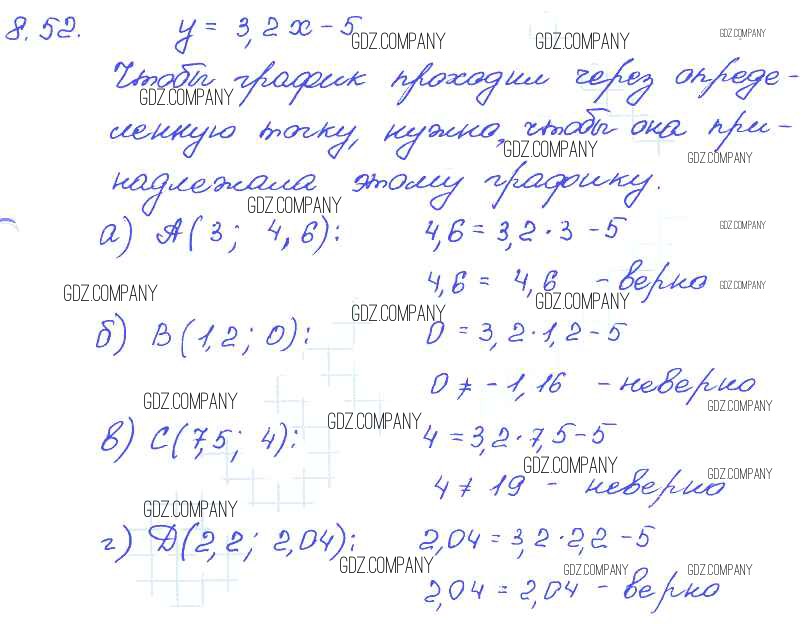 8.52. y = 3,2x - 5
GDZ.COMPANY GDZ.COMPANY GDZ.COMPANY
Чтобы график проходил через опреде-
GDZ.COMPANY
ленную точку, нужно, чтобы она при-
GDZ.COMPANY GDZ.COMPANY
надлежала этому графику.
GDZ.COMPANY
а) A(3; 4,6): 4,6 = 3,2 · 3 - 5
GDZ.COMPANY
4,6 = 4,6 - верно
GDZ.COMPANY GDZ.COMPANY GDZ.COMPANY
GDZ.COMPANY
б) B(1,2; 0): 0 = 3,2 · 1,2 - 5
0 ≠ -1,16 - неверно
GDZ.COMPANY GDZ.COMPANY
GDZ.COMPANY
в) C(7,5; 4): 4 = 3,2 · 7,5 - 5
GDZ.COMPANY GDZ.COMPANY
4 ≠ 19 - неверно
GDZ.COMPANY
г) D(2,2; 2,04): 2,04 = 3,2 · 2,2 - 5
GDZ.COMPANY GDZ.COMPANY GDZ.COMPANY
2,04 = 2,04 - верно